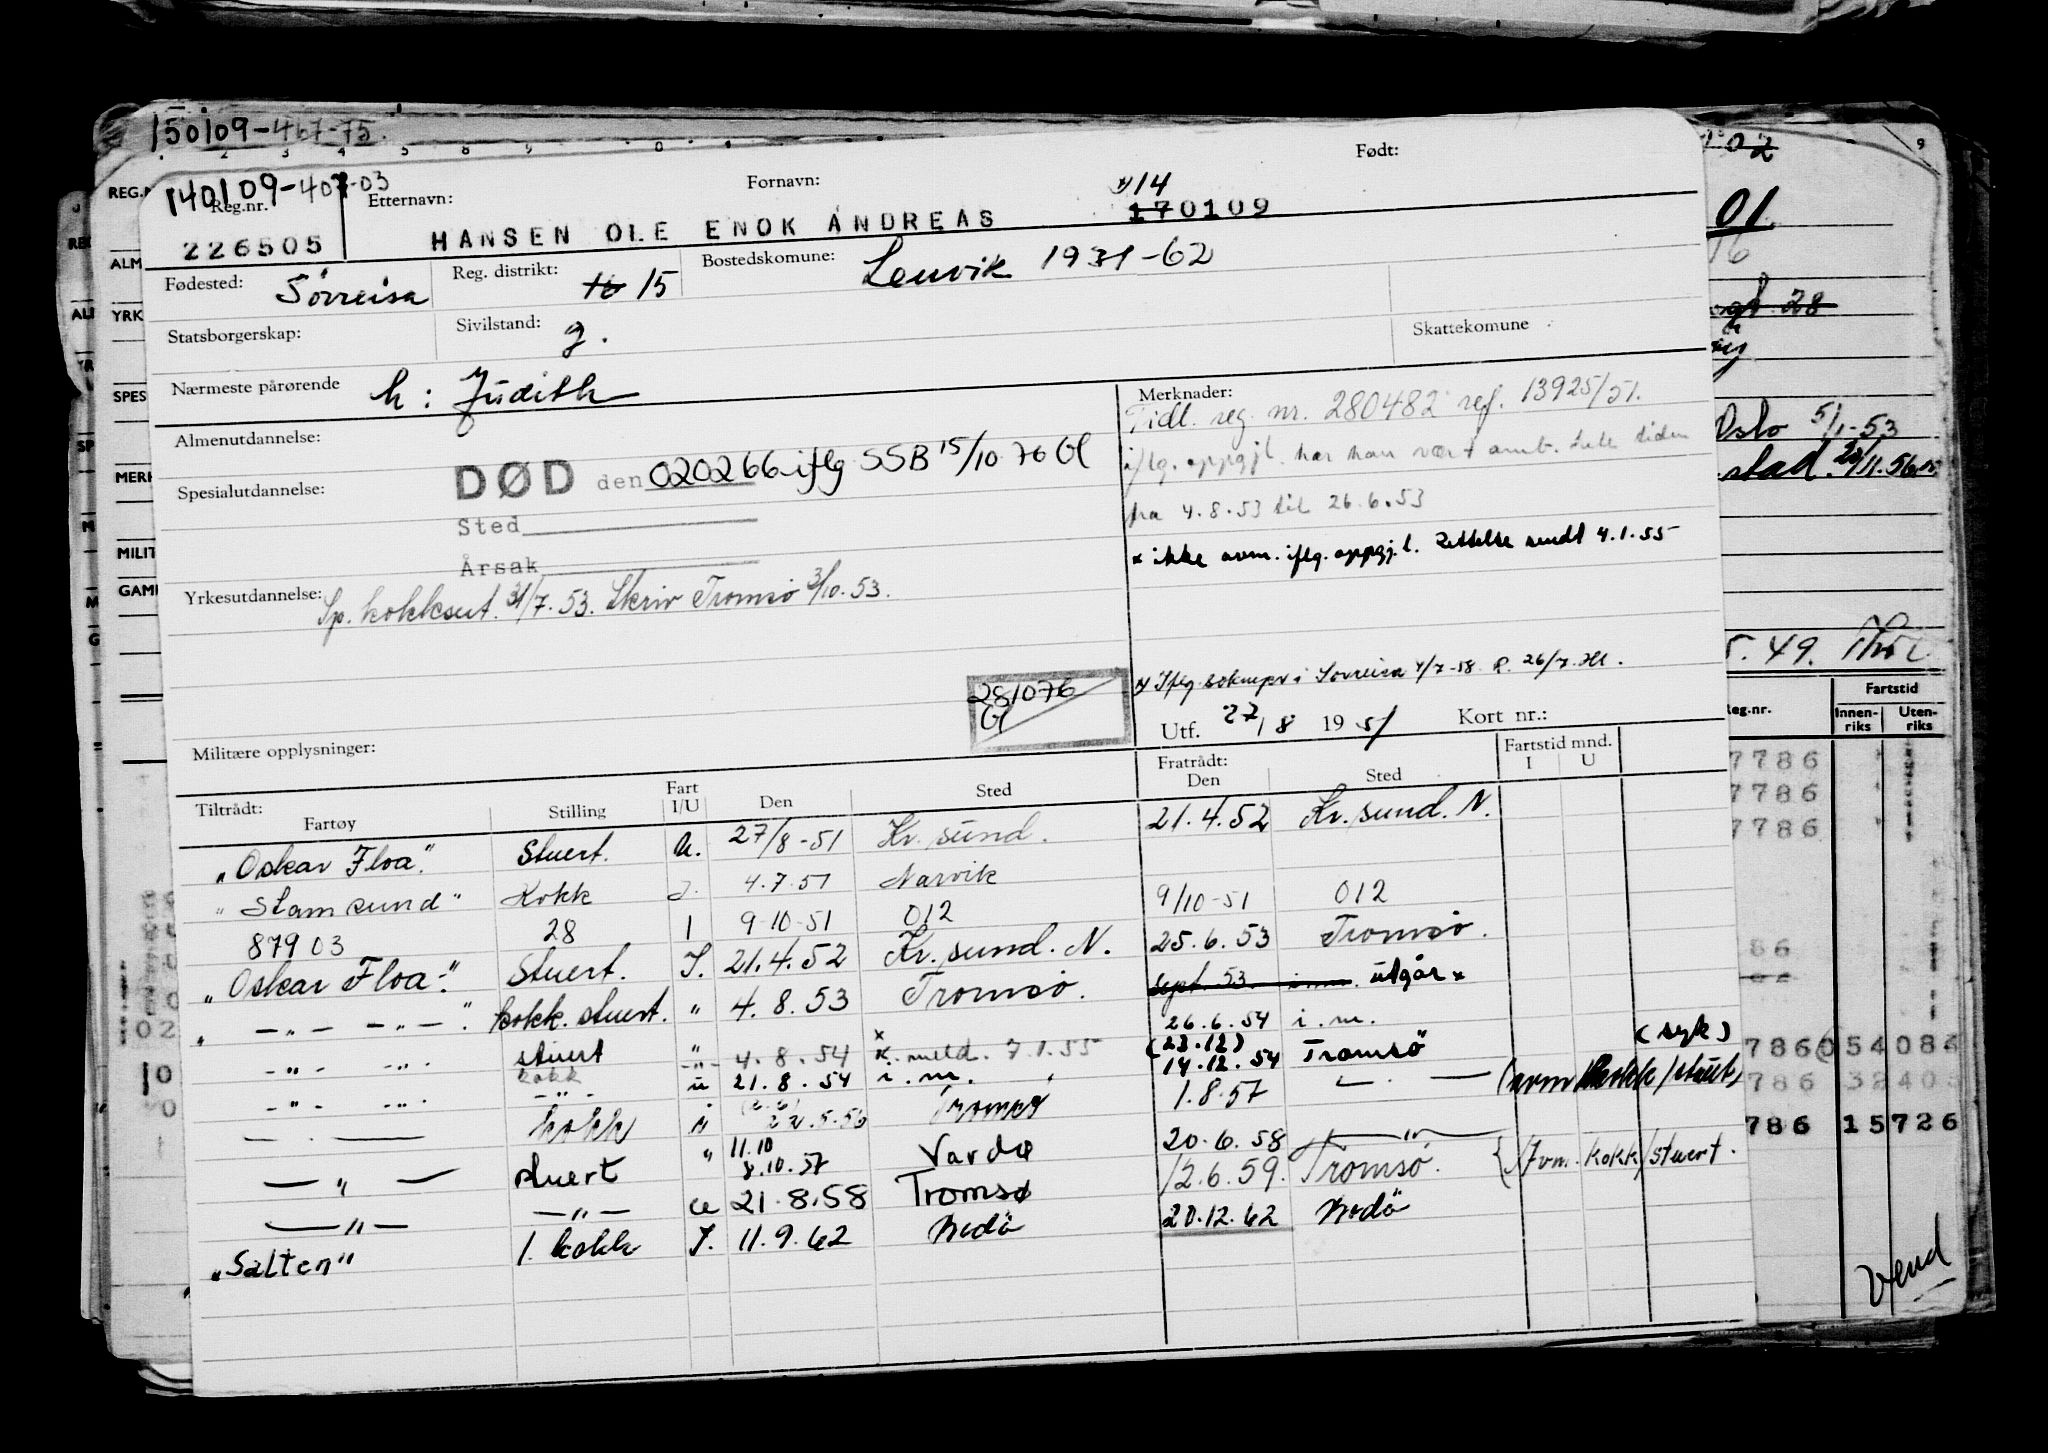 150109-467-75.
140109-407-03
Reg.nr. Etternavn: Fornavn: Født:
226505 HANSEN OLE ENOK ANDREAS 14 170109
Fødested: Sörreisa Reg. distrikt: 16 15 Bostedskomune: Lenvik 1931-62
Statsborgerskap: Sivilstand: g. Skattekomune
Nærmeste pårørende h: Judith Merknader:
Tidl. reg. nr. 280482 ref. 13925/51.
Almenutdannelse:
iflg. oppgj. har han vært omb. hele tiden
Spesialutdannelse: DØD den 020266 iflg SSB 15/10 76 Gl
fra 4.8.53 til 26.6.53
Sted
x ikke avm. iflg. oppgj. l. Rettelse sendt 4.1.55
Årsak
Yrkesutdannelse: Sp. kokksut. 31/7.53. Skriv Tromsö 3/10.53.
281076 Gl
x) Iflg. soknepr i Sörreisa 4/7-58 P. 26/7.
Utf. 27/8 1951 Kort nr.:
Militære opplysninger:
Tiltrådt: Fratrådt: Fartstid mnd.
Fartøy Stilling Fart I/U Den Sted Den Sted I U
"Oskar Floa". Stuert. U. 27/8-51 Kr.sund. 21.4.52 Kr.sund.N.
"Stamsund" Kokk J. 4.7.51 Narvik 9/10-51 012
87903 28 1 9-10-51 012 25.6.53 Tromsö.
"Oskar Floa". Stuert. I. 21.4.52 Kr.sund.N. sept. 53 utgår x
" —"— —"— " kokk.stuert. " 4.8.53 Tromsö. 26.6.54 i.m.
-"- -"- stuert " -"- 4.8.54 x k.meld. 7.1.55 (23.12) 14.12.54 Tromsö (syk)
-"- -"- kokk -"- u 21.8.54 i.m. 1.8.57 (avm kokk/stuert)
— . — kokk " 22.5.56 Tromsö 20.6.58 —"—
— " — stuert " 11.10 8.10.57 Vardø 12.6.59. Tromsö. { /Avm. kokk/stuert.
— " — —"— u 21.8.58 Tromsø 20.12.62 Bodö
"Salten" 1. kokk I. 11.9.62 Bodö
REG.N
ALM
YRK
SPES
MERK
MILIT
GAME
02
01
Oslo 5/1-53
stad.
.49.
Fartstid
Reg.nr. Innen-riks Uten-riks
7786
7786
7786
86
786 054084
786 3240
786 15726
Vend